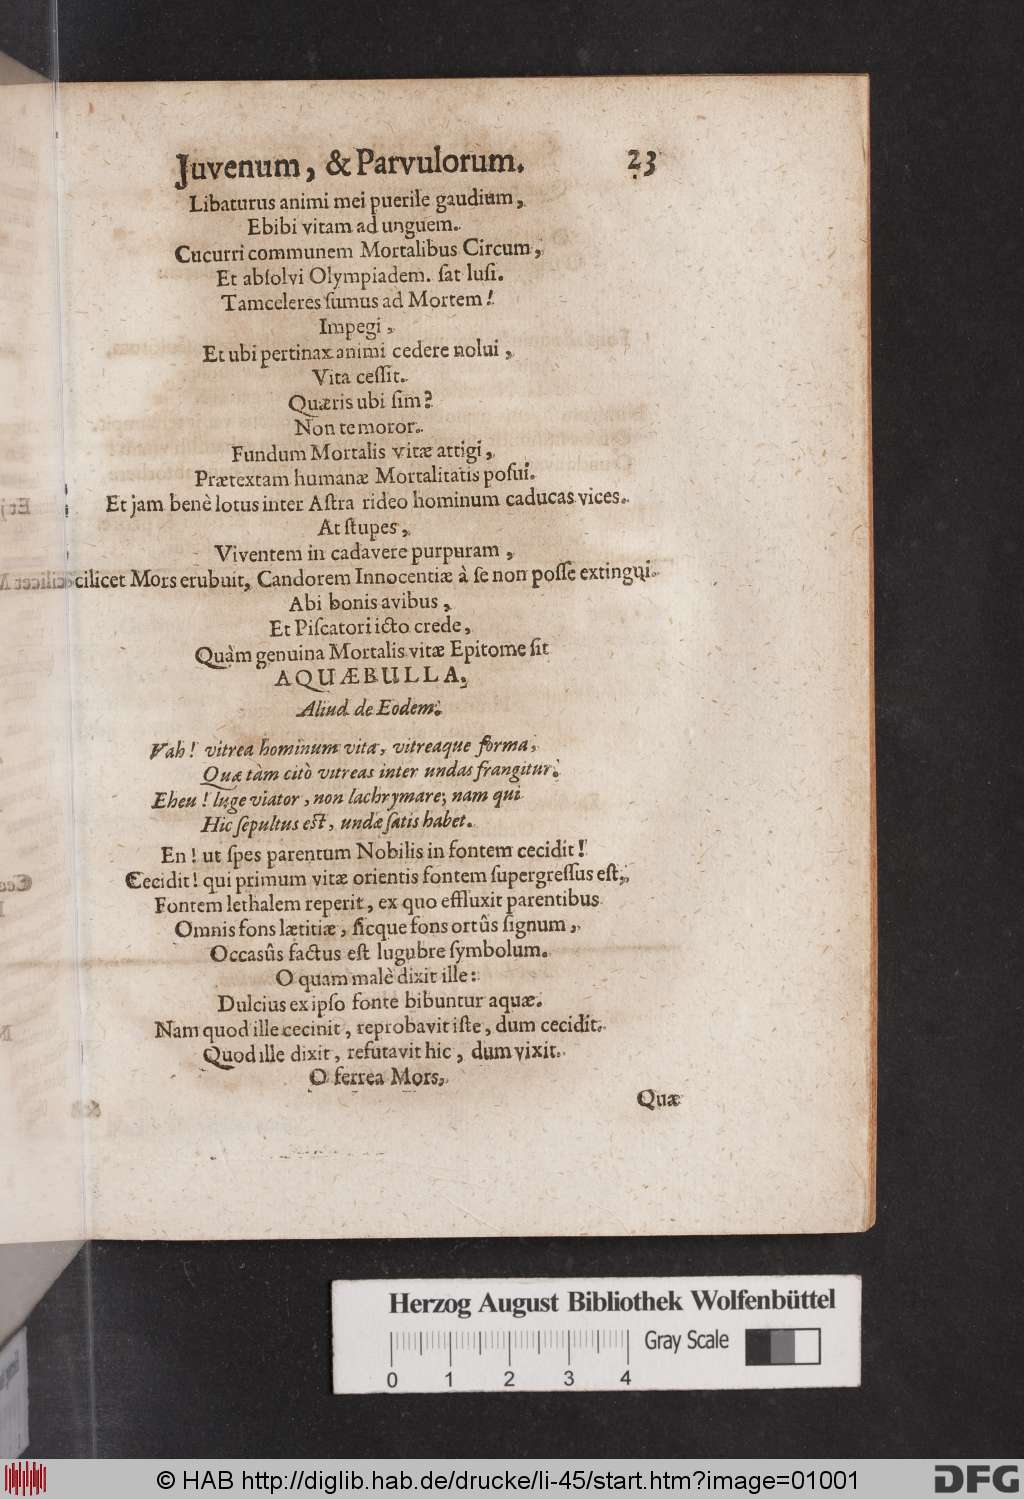 Juvenum, & Parvulorum. 23
Libaturus animi mei puerile gaudium,
Ebibi vitam ad unguem.
Cucurri communem Mortalibus Circum,
Et abſolvi Olympiadem. ſat luſi.
Tamceleres ſumus ad Mortem!
Impegi,
Et ubi pertinax animi cedere nolui,
Vita ceſſit.
Quæris ubi ſim?
Non te moror.
Fundum Mortalis vitæ attigi,
Prætextam humanæ Mortalitatis poſui.
Et jam benè lotus inter Aſtra rideo hominum caducas vices.
At ſtupes,
Viventem in cadavere purpuram,
cilicet Mors erubuit, Candorem Innocentiæ à ſe non poſſe extingui.
Abi bonis avibus,
Et Piſcatori icto crede,
Quàm genuina Mortalis vitæ Epitome ſit
AQUÆBULLA,
Aliud de Eodem.
Vah! vitrea hominum vita, vitreaque forma,
Quæ tàm citò vitreas inter undas frangitur.
Eheu! luge viator, non lachrymare; nam qui
Hic ſepultus eſt, undæ ſatis habet.
En! ut ſpes parentum Nobilis in fontem cecidit!
Cecidit! qui primum vitæ orientis fontem ſupergreſſus eſt,
Fontem lethalem reperit, ex quo effluxit parentibus
Omnis fons lætitiæ, ſicque fons ortûs ſignum,
Occasûs factus eſt lugubre ſymbolum.
O quam malè dixit ille:
Dulcius ex ipſo fonte bibuntur aquæ.
Nam quod ille cecinit, reprobavit iſte, dum cecidit.
Quod ille dixit, refutavit hic, dum vixit.
O ferrea Mors,
Quæ
Herzog August Bibliothek Wolfenbüttel
Gray Scale
0 1 2 3 4
© HAB http://diglib.hab.de/drucke/li-45/start.htm?image=01001
DFG